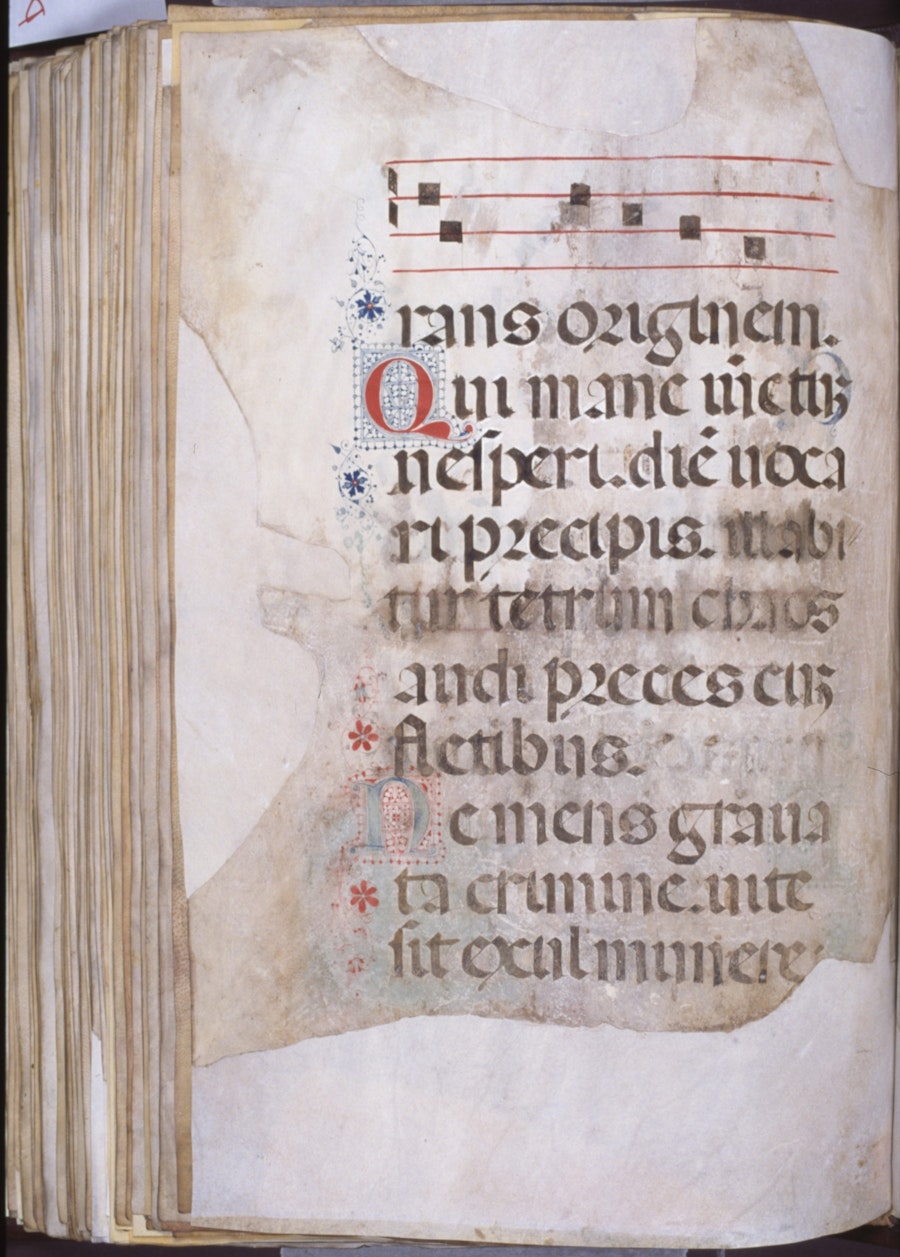 rans originem.
Qui mane iūctuꝫ
uesperi. diē uoca
ri precipis. illabi
tur tetrum chaos
audi preces cuꝫ
fletibus.
Ne mens graua
ta crimine. uite
sit exul munere